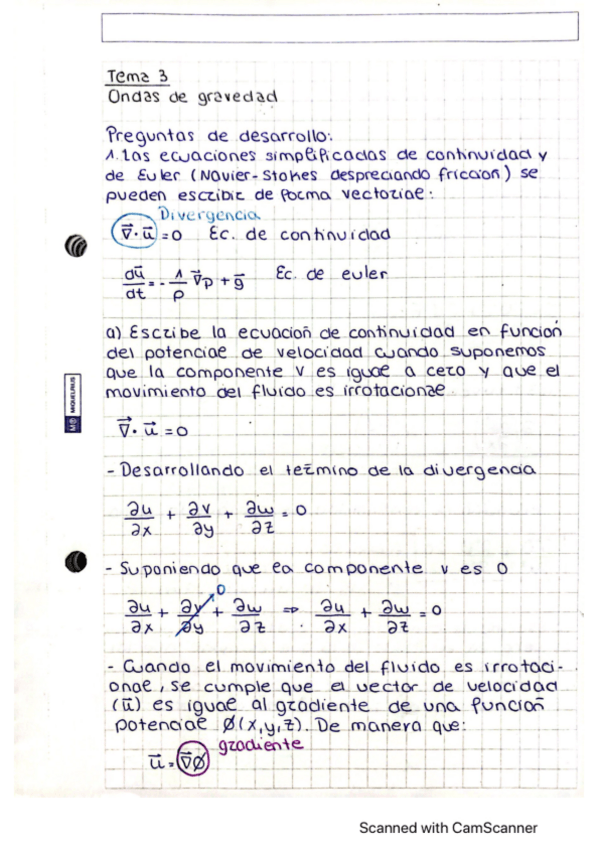 Tema 3
Ondas de gravedad
Preguntas de desarrollo:
1. Las ecuaciones simplificadas de continuidad y
de Euler (Navier-Stokes despreciando friccion) se
pueden escribir de forma vectorial:
Divergencia
∇⃗·u⃗ = 0 Ec. de continuidad
du⃗/dt = - 1/ρ ∇⃗p + g⃗ Ec. de euler
a) Escribe la ecuación de continuidad en función
del potencial de velocidad cuando suponemos
que la componente v es igual a cero y que el
movimiento del fluido es irrotacional
MIQUELRIUS
∇⃗·u⃗ = 0
- Desarrollando el término de la divergencia
∂u/∂x + ∂v/∂y + ∂w/∂z = 0
- Suponiendo que la componente v es 0
∂u/∂x + ∂v/∂y 0 + ∂w/∂z ⇒ ∂u/∂x + ∂w/∂z = 0
- Cuando el movimiento del fluido es irrotaci-
onal, se cumple que el vector de velocidad
(u⃗) es igual al gradiente de una función
potencial Ø(x,y,z). De manera que:
gradiente
u⃗ = ∇⃗Ø
Scanned with CamScanner